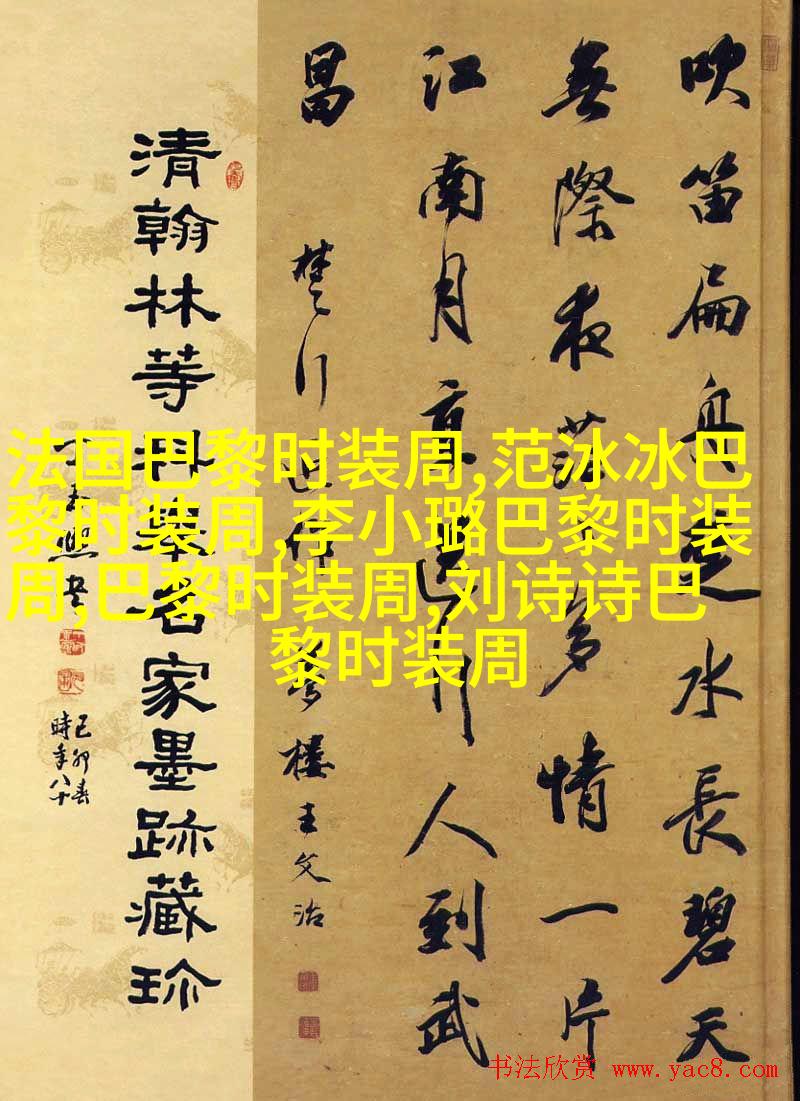 法国巴黎时装周,范冰冰巴
黎时装周,李小璐巴黎时装
周,巴黎时装周,刘诗诗巴
黎时装周
吹笛扁舟楚水長碧天
無際夜蒼多情一片
江南月直送行人到武
昌
楚行 夢樓王文治
清翰林等科舉名家墨跡藏珍
熙書
己卯春
時年八十
书法欣赏 www.yac8.com